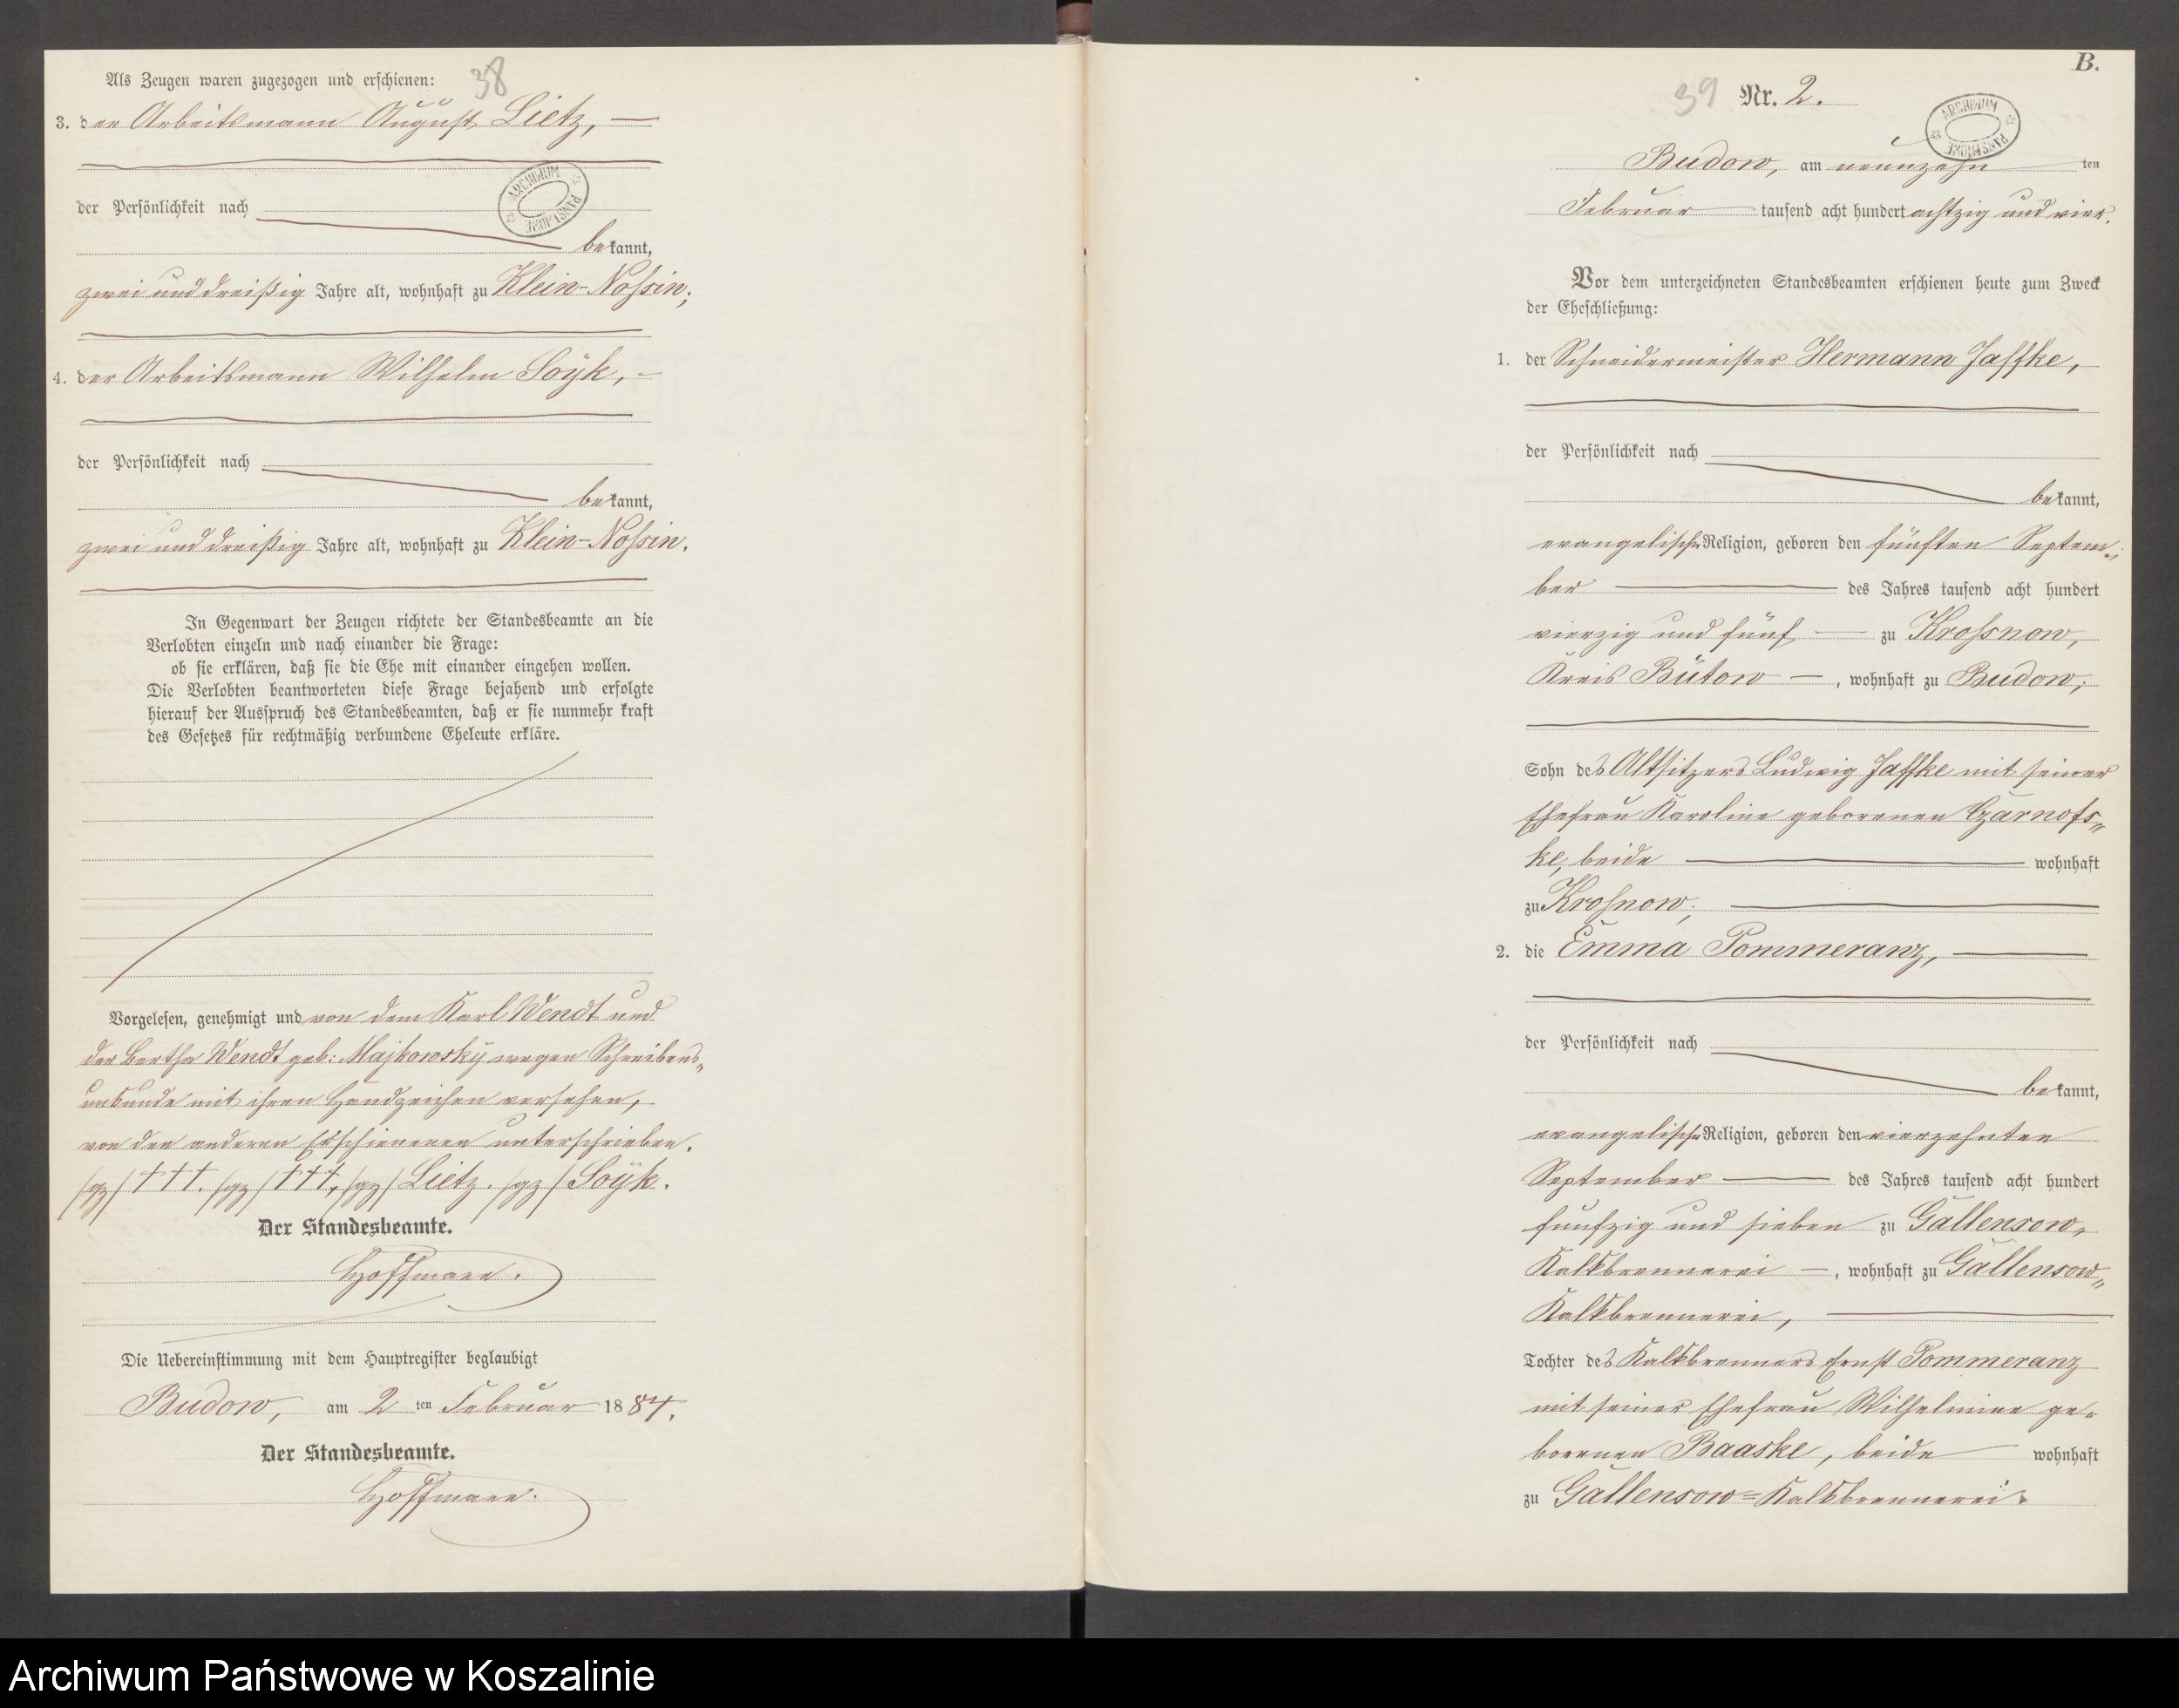 Als Zeugen waren zugezogen und erschienen:
38
3. der Arbeitsmann August Lietz,
ARCHIWUM PAŃSTWOWE
der Persönlichkeit nach
bekannt,
zwei und dreißig Jahre alt, wohnhaft zu Klein-Nossin;
4. der Arbeitsmann Wilhelm Soÿk,
der Persönlichkeit nach
bekannt,
zwei und dreißig Jahre alt, wohnhaft zu Klein-Nossin.
In Gegenwart der Zeugen richtete der Standesbeamte an die
Verlobten einzeln und nach einander die Frage:
ob sie erklären, daß sie die Ehe mit einander eingehen wollen.
Die Verlobten beantworteten diese Frage bejahend und erfolgte
hierauf der Ausspruch des Standesbeamten, daß er sie nunmehr kraft
des Gesetzes für rechtmäßig verbundene Eheleute erkläre.
Vorgelesen, genehmigt und von dem Karl Wendt und
der Bertha Wendt geb: Majkowskÿ wegen Schreibens-
unkunde mit ihren Handzeichen versehen,
von den anderen Erschienenen unterschrieben.
/gz/ +++. /gz/ +++, /gz/ Lietz. /gz/ Soÿk.
Der Standesbeamte.
Hoffmann.
Die Uebereinstimmung mit dem Hauptregister beglaubigt
Budow, am 2 ten Februar 1884.
Der Standesbeamte.
Hoffmann.
B.
39 Nr. 2.
ARCHIWUM PAŃSTWOWE
Budow, am neunzehn ten
Februar tausend acht hundert achtzig und vier.
Vor dem unterzeichneten Standesbeamten erschienen heute zum Zweck
der Eheschließung:
1. der Schneidermeister Hermann Jaffke,
der Persönlichkeit nach
bekannt,
evangelischer Religion, geboren den fünften Septem-
ber des Jahres tausend acht hundert
vierzig und fünf zu Krossnow,
Kreis Bütow, wohnhaft zu Budow,
Sohn des Altsitzers Ludwig Jaffke mit seiner
Ehefrau Karoline geborenen Czarnofs-
ke, beide wohnhaft
zu Krossnow;
2. die Emma Pommeranz,
der Persönlichkeit nach
bekannt,
evangelischer Religion, geboren den vierzehnten
September des Jahres tausend acht hundert
funfzig und sieben zu Gallensow-
Kalkbrennerei, wohnhaft zu Gallensow-
Kalkbrennerei,
Tochter des Kalkbrenners Ernst Pommeranz
mit seiner Ehefrau Wilhelmine ge-
borenen Baaske, beide wohnhaft
zu Gallensow=Kalkbrennerei.
Archiwum Państwowe w Koszalinie